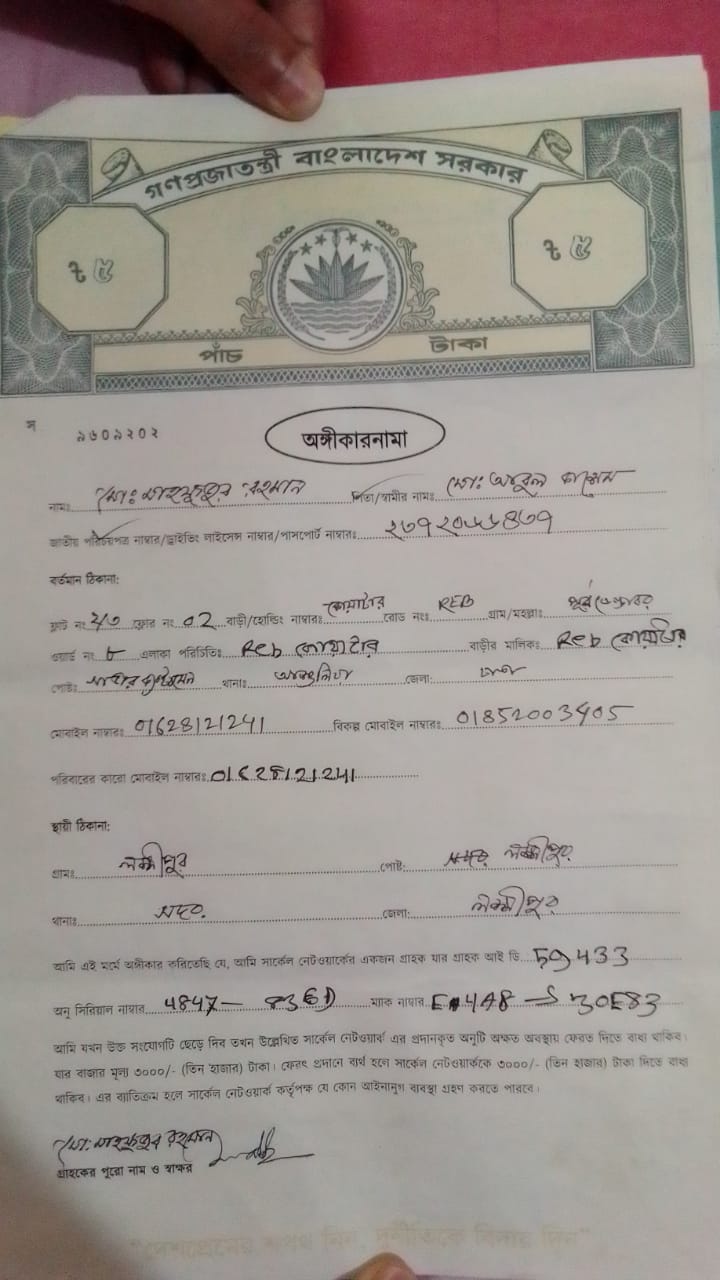 গণপ্রজাতন্ত্রী বাংলাদেশ সরকার
৳ ৫ ৳ ৫
পাঁচ টাকা
স ৯৬০৯২০২
অঙ্গীকারনামা
নামঃ মোঃ মাহফুজুর রহমান পিতা/স্বামীর নামঃ মোঃ আবুল কাশেম
জাতীয় পরিচয়পত্র নাম্বার/ড্রাইভিং লাইসেন্স নাম্বার/পাসপোর্ট নাম্বারঃ
বর্তমান ঠিকানা:
ফ্লাট নং ফ্লোর নং ০২ বাড়ী/হোল্ডিং নাম্বারঃ কোয়ার্টার রোড নংঃ REB গ্রাম/মহল্লাঃ
ওয়ার্ড নং ৮ এলাকা পরিচিতিঃ Reb কোয়াটার বাড়ীর মালিকঃ Reb কোয়াটার
পোষ্টঃ থানাঃ আশুলিয়া জেলাঃ ঢাকা
মোবাইল নাম্বারঃ 01628121241 বিকল্প মোবাইল নাম্বারঃ 01852003405
পরিবারের কারো মোবাইল নাম্বারঃ 01628121241
স্থায়ী ঠিকানা:
গ্রামঃ লক্ষীপুর পোষ্ট: লক্ষীপুর
থানাঃ সদর জেলাঃ লক্ষীপুর
আমি এই মর্মে অঙ্গীকার করিতেছি যে, আমি সার্কেল নেটওয়ার্কের একজন গ্রাহক যার গ্রাহক আই ডি 59433
অনু সিরিয়াল নাম্বার 4847- ম্যাক নাম্বার
আমি যখন উক্ত সংযোগটি ছেড়ে দিব তখন উল্লেখিত সার্কেল নেটওয়ার্ক এর প্রদানকৃত অনুটি অক্ষত অবস্থায় ফেরত দিতে বাধ্য থাকিব।
যার বাজার মূল্য ৩০০০/- (তিন হাজার) টাকা। ফেরৎ প্রদানে ব্যর্থ হলে সার্কেল নেটওয়ার্ককে ৩০০০/- (তিন হাজার) টাকা দিতে বাধ্য
থাকিব। এর ব্যতিক্রম হলে সার্কেল নেটওয়ার্ক কর্তৃপক্ষ যে কোন আইনানুগ ব্যবস্থা গ্রহণ করতে পারবে।
মোঃ মাহফুজুর রহমান
গ্রাহকের পুরো নাম ও স্বাক্ষর
"দেশপ্রেমের শপথ নিন, দুর্নীতিকে বিদায় দিন"